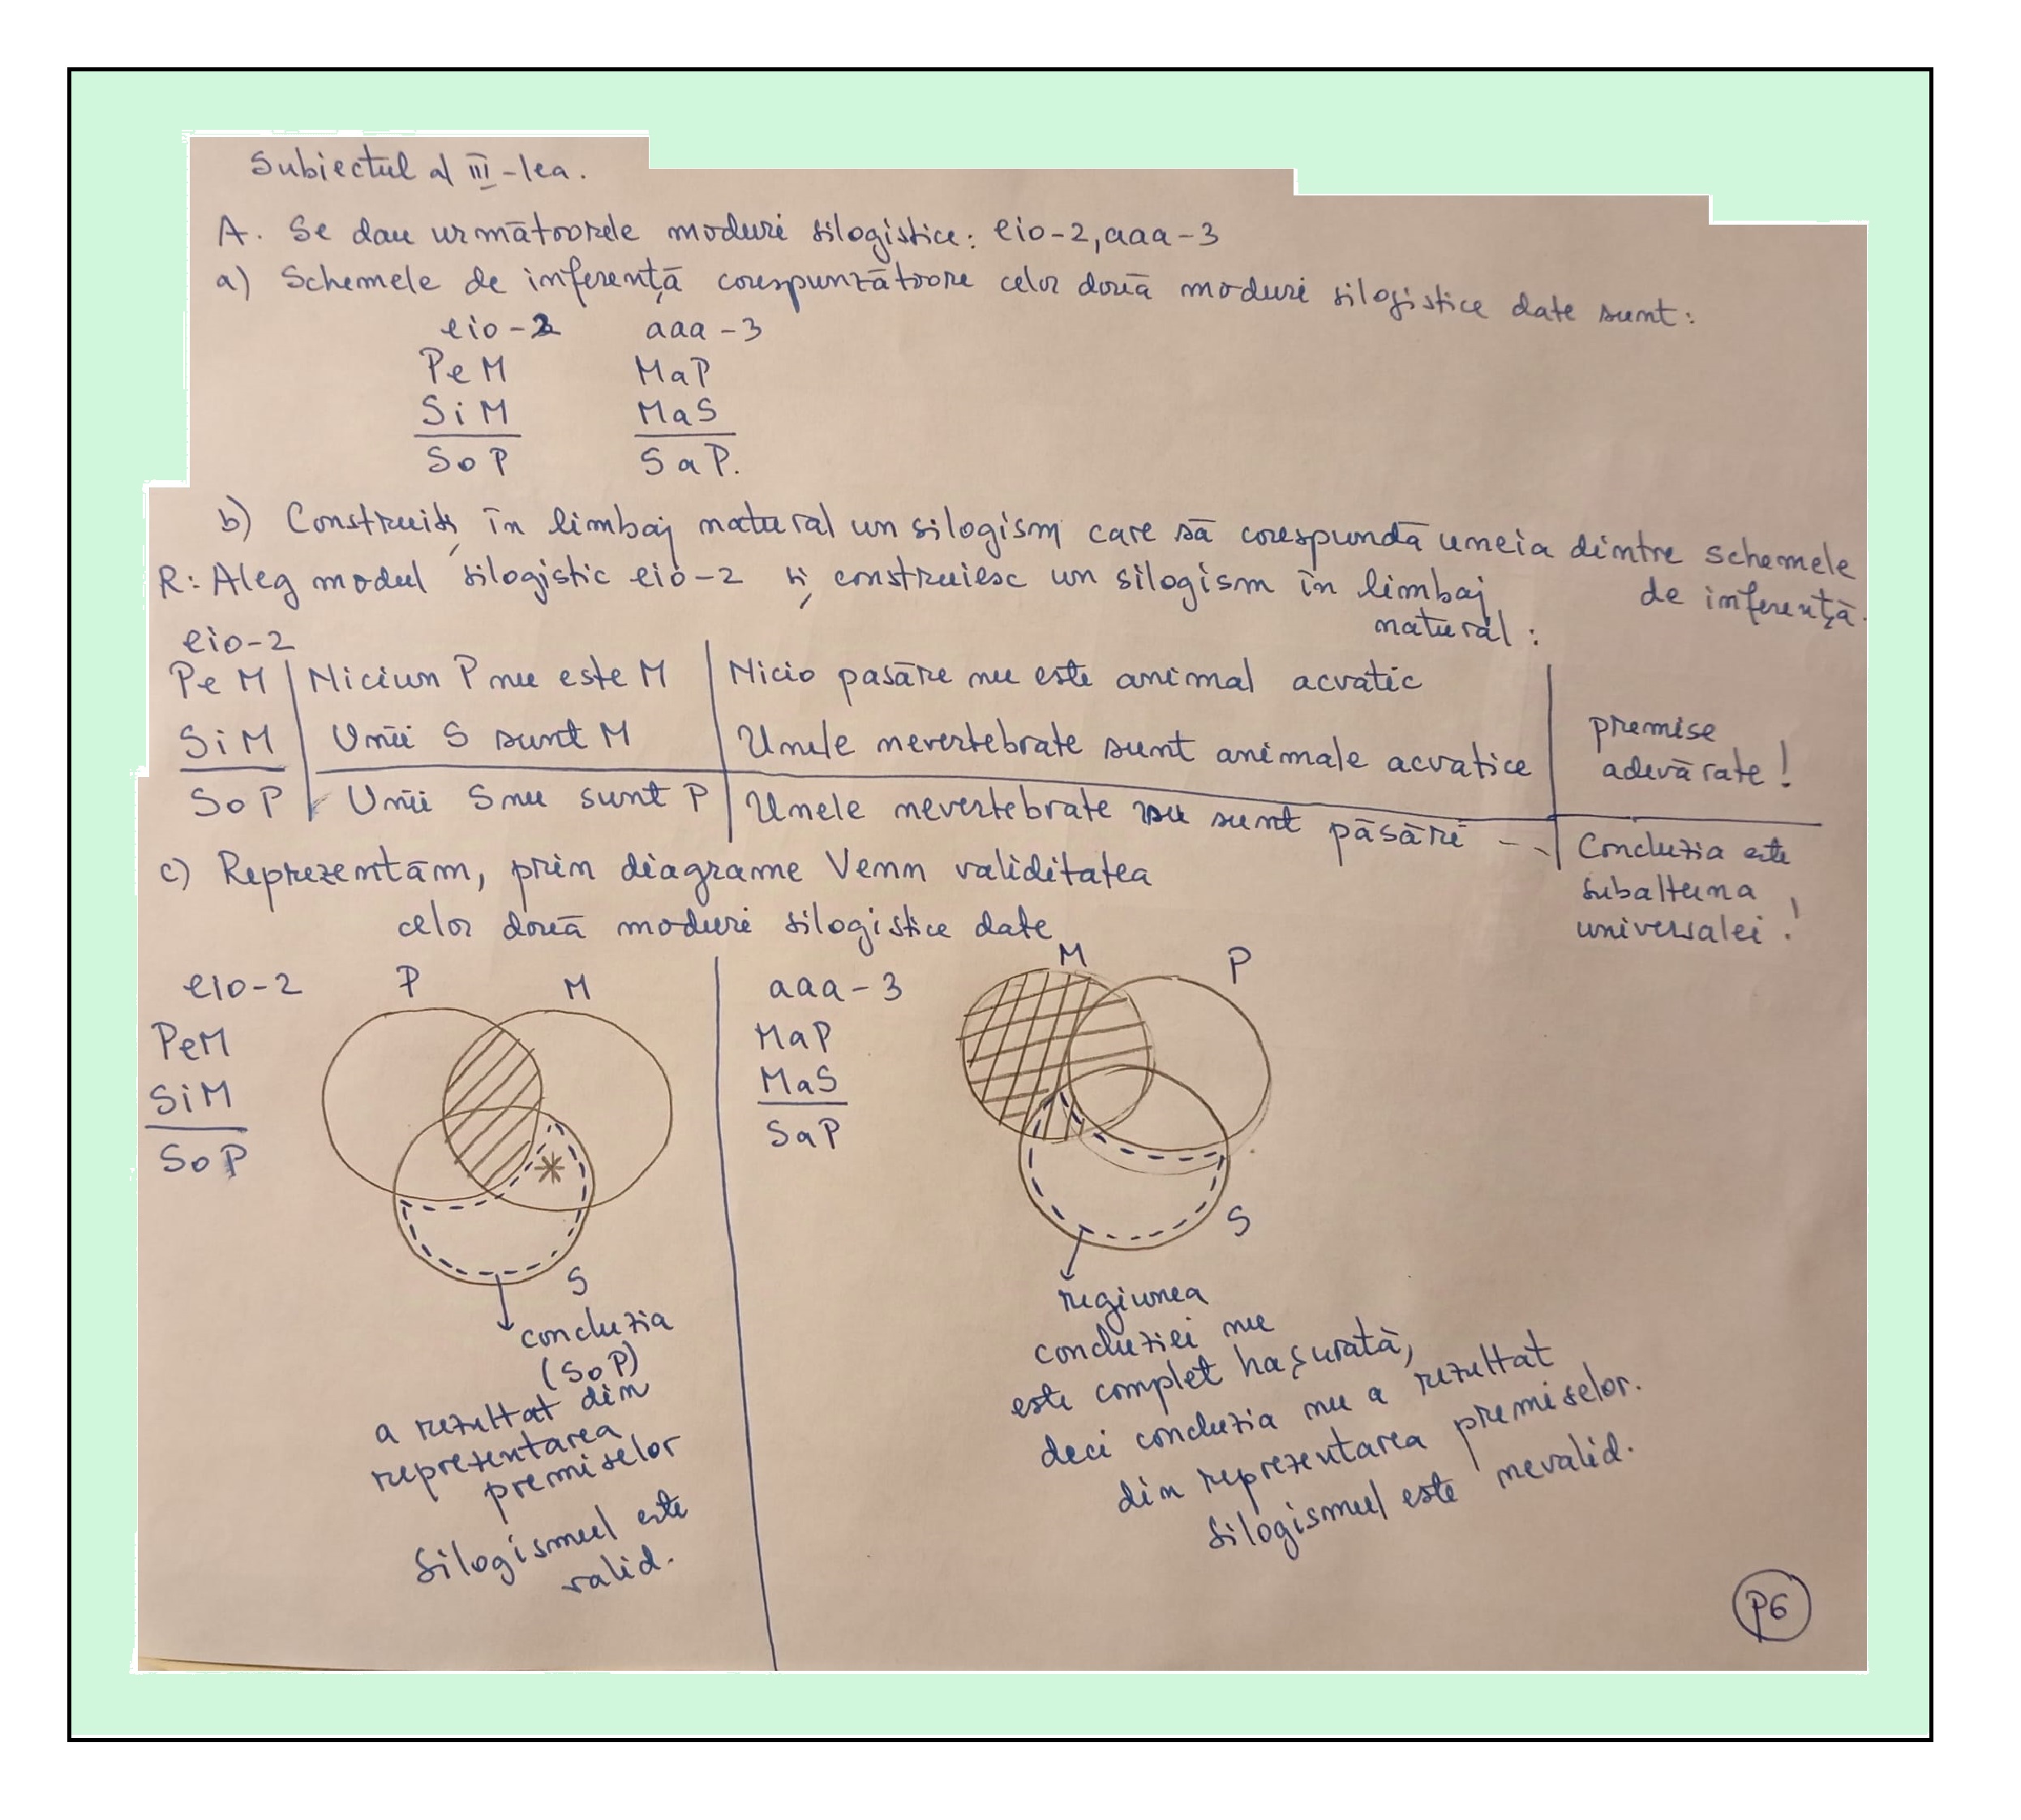 Subiectul al III-lea.
A. Se dau următoarele moduri silogistice: eio-2, aaa-3
a) Schemele de inferență corespunzătoare celor două moduri silogistice date sunt:
eio-2 aaa-3
PeM MaP
SiM MaS
SoP SaP.
b) Construiți în limbaj natural un silogism care să corespundă uneia dintre schemele
de inferență.
R: Aleg modul silogistic eio-2 și construiesc un silogism în limbaj
natural:
eio-2
PeM Niciun P nu este M Nicio pasăre nu este animal acvatic
SiM Unii S sunt M Unele nevertebrate sunt animale acvatice premise
adevărate!
SoP Unii S nu sunt P Unele nevertebrate nu sunt păsări -- Concluzia este
subalterna
universalei!
c) Reprezentăm, prin diagrame Venn validitatea
celor două moduri silogistice date
eio-2 P M
PeM
SiM
SoP
S
concluzia
(SoP)
a rezultat din
reprezentarea
premiselor
Silogismul este
valid.
aaa-3 M P
MaP
MaS
SaP
S
regiunea
concluziei nu
este complet hașurată,
deci concluzia nu a rezultat
din reprezentarea premiselor.
Silogismul este nevalid.
P6